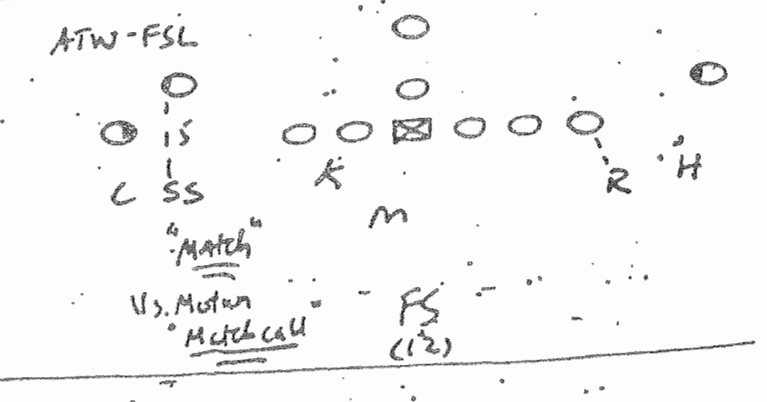 ATW-FSL
S
K
H
R
C SS
M
"Match"
Vs. Motion
"Match call"
FS
(12)